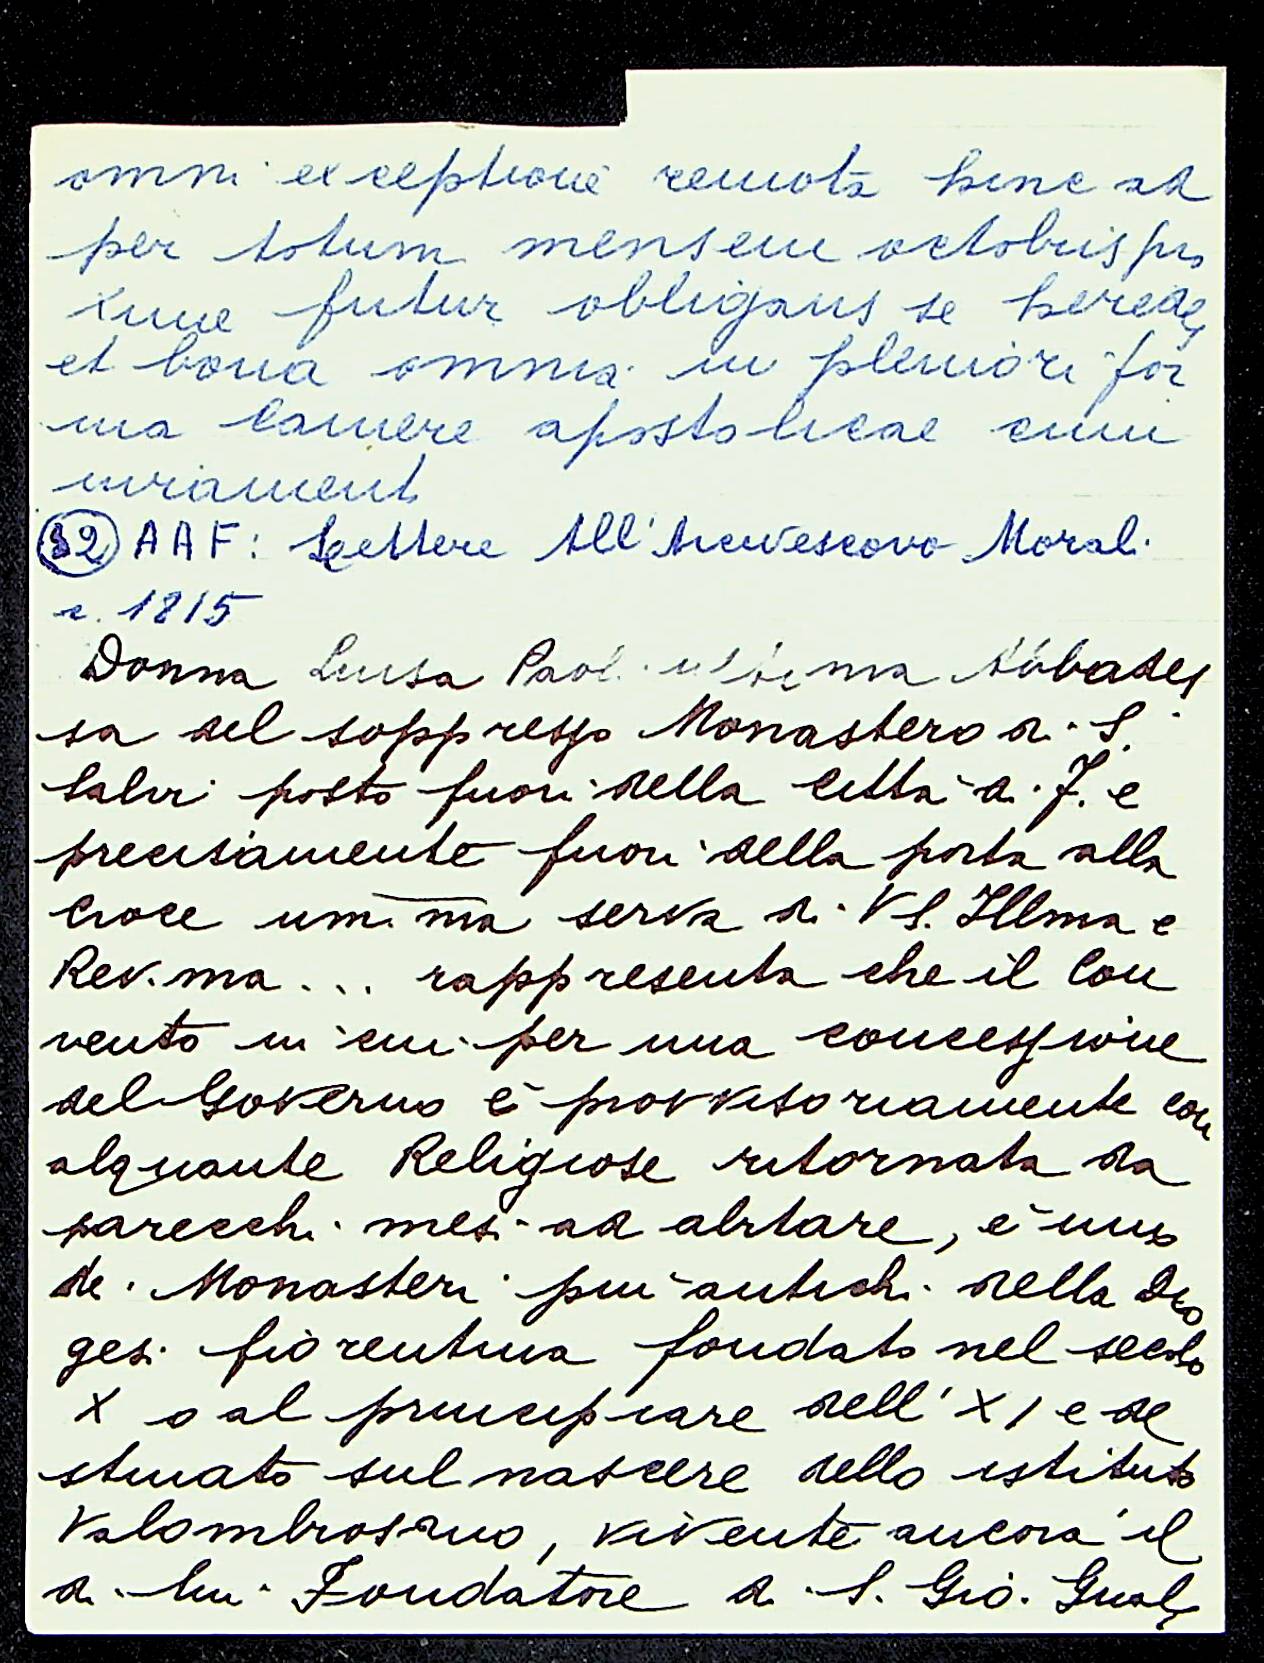 omni exceptione remota hinc ad
per totum mensem octobris pro
xime futur obligans se hered
et bona omnia in pleniori for
ma Camere apostolicae cum
iuriament
32 AAF: Lettere All'Arcivescovo Morali
a. 1815
Donna Luisa Paoli ultima Abbades
sa del soppresso Monastero di S.
Salvi posto fuori della città di F. e
precisamente fuori della porta alla
Croce um.ma serva di VS. Illma e
Rev.ma ... rappresenta che il Con
vento in cui per una concessione
del Governo è provvisoriamente con
alquante Religiose ritornata da
parecchi mesi ad abitare, è uno
de' Monasteri più antichi della Dio
gesi fiorentina fondato nel secolo
X o al principiare dell'XI e de
stinato sul nascere dello istituto
Valombrosano, vivente ancora il
di lui Fondatore d. S. Gio. Gual